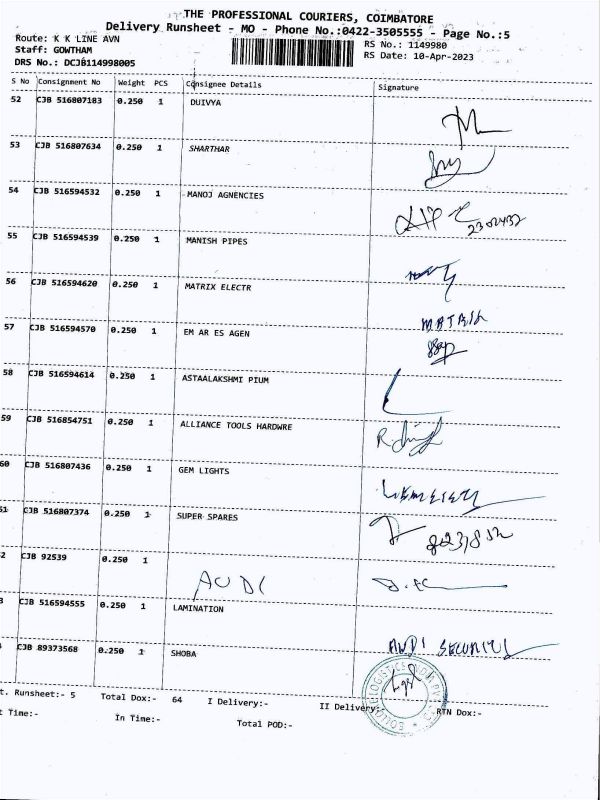 THE PROFESSIONAL COURIERS, COIMBATORE
Delivery Runsheet - MO - Phone No.:0422-3505555 - Page No.:5
Route: K K LINE AVN
RS No.: 1149980
Staff: GOWTHAM
RS Date: 10-Apr-2023
DRS No.: DCJB114998005
S No Consignment No Weight PCS Consignee Details Signature
52 CJB 516807183 0.250 1 DUIVYA
53 CJB 516807634 0.250 1 SHARTHAR
54 CJB 516594532 0.250 1 MANOJ AGNENCIES
2302432
55 CJB 516594539 0.250 1 MANISH PIPES
56 CJB 516594620 0.250 1 MATRIX ELECTR
MATRIX
57 CJB 516594570 0.250 1 EM AR ES AGEN
58 CJB 516594614 0.250 1 ASTAALAKSHMI PIUM
59 CJB 516854751 0.250 1 ALLIANCE TOOLS HARDWRE
60 CJB 516807436 0.250 1 GEM LIGHTS
51 CJB 516807374 0.250 1 SUPER SPARES
2 CJB 92539 0.250 1
AUDI
3 CJB 516594555 0.250 1 LAMINATION
AUDI SECURITY
CJB 89373568 0.250 1 SHOBA
t. Runsheet:- 5 Total Dox:- 64 I Delivery:- II Delivery:- RTN Dox:-
t Time:- In Time:- Total POD:-